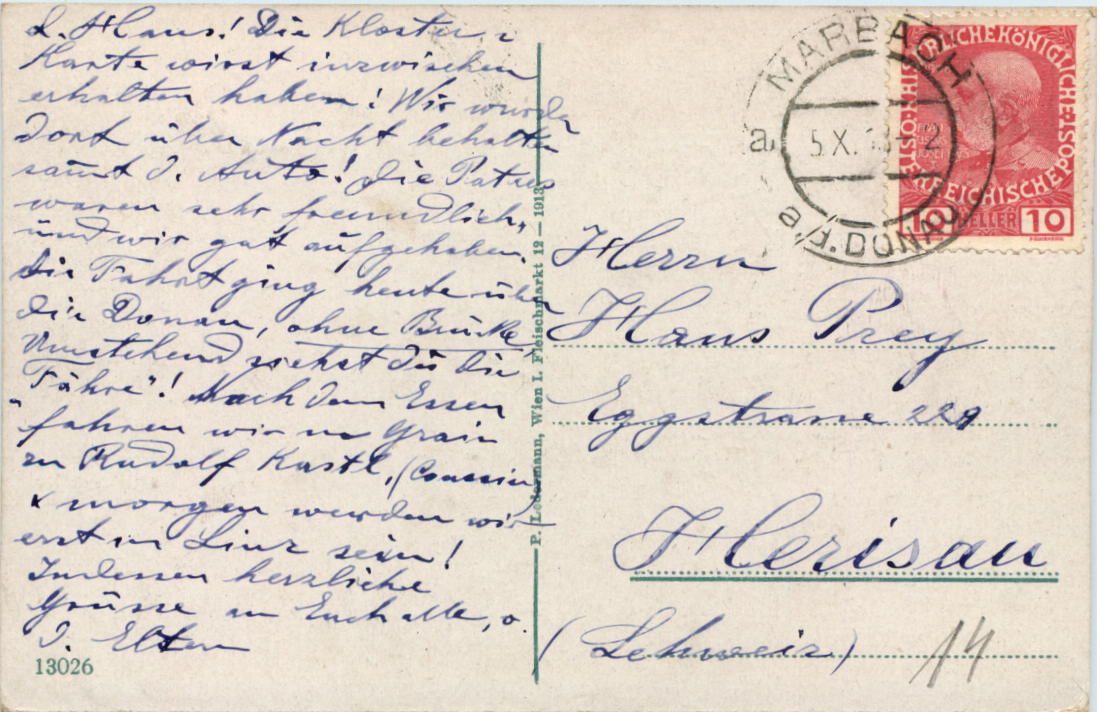 L. Hans! Die Kloster-
Karte wirst inzwischen
erhalten haben! Wir wurden
dort über Nacht behalten
samt d. Auto! Die Patres
waren sehr freundlich,
und wir gut aufgehoben.
Die Fahrt ging heute über
die Donau, ohne Brücke
Umstehend siehst du die
"Fähre"! Nach dem Essen
fahren wir n. Grein
zu Rudolf Kastl, (Coussin)
x morgen werden wir
erst in Linz sein!
Indessen herzliche
Grüsse an Euch alle, v.
d. Eltern
13026
P. Ledermann, Wien I. Fleischmarkt 12 — 1913
MARBACH
a
5.X.13
a/d. DONAU
KAISERLICHE KÖNIGLICHE ÖSTERREICHISCHE POST
10 HELLER 10
Herrn
Hans Prey
Eggstrasse 229
Herisau
(Schweiz)
14